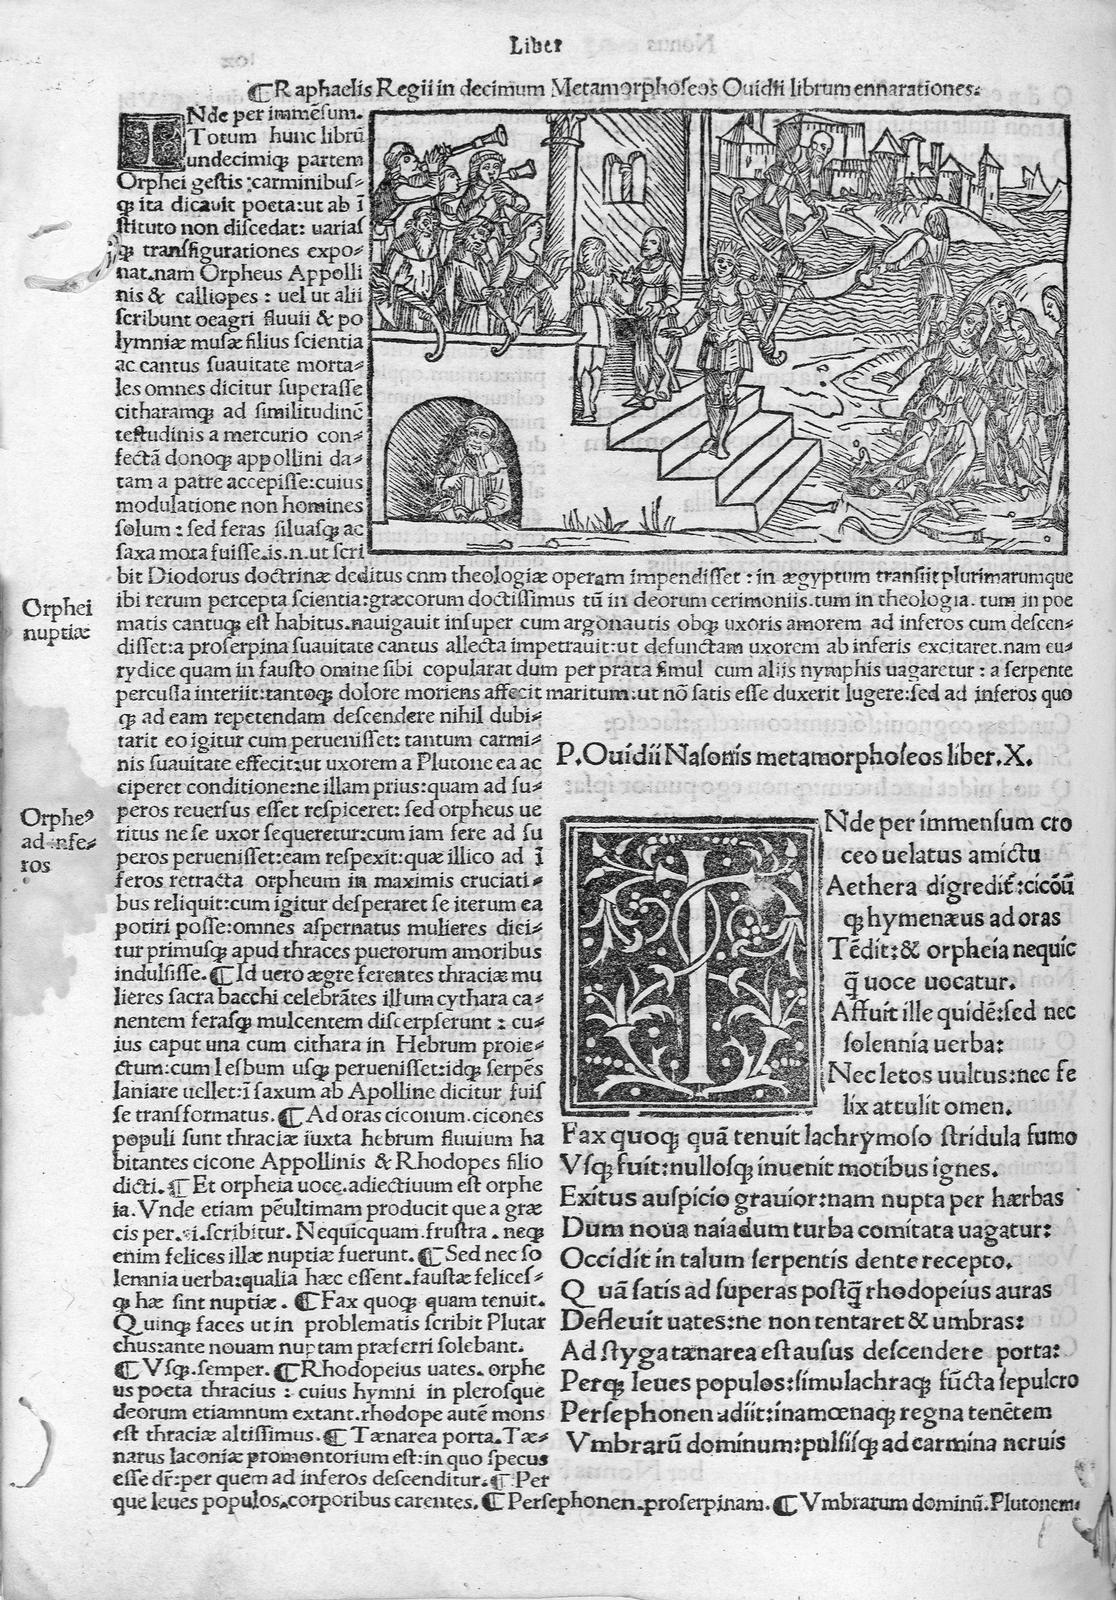 Liber
⸿Raphaelis Regii in decimum Metamorphoseos Ouidii librum ennarationes.
INde per immēsum.
Totum hunc librū
undecimiqꝫ partem
Orphei gestis :carminibus⸗
qꝫ ita dicauit poeta:ut ab ī
stituto non discedat: uarias
qꝫ transfigurationes expo⸗
nat.nam Orpheus Appolli
nis & calliopes : uel ut alii
scribunt oeagri fluuii & po
lymniæ musæ filius scientia
ac cantus suauitate morta⸗
les omnes dicitur superasse
citharamqꝫ ad similitudinē
testudinis a mercurio con⸗
fectā donoqꝫ appollini da⸗
tam a patre accepisse:cuius
modulatione non homines
solum : sed feras siluasqꝫ ac
saxa mota fuisse.is.n.ut scri
bit Diodorus doctrinæ deditus cnm theologiæ operam impendisset : in ægyptum transiit plurimarumque
ibi rerum percepta scientia:græcorum doctissimus tū in deorum cerimoniis.tum in theologia. tum in poe
matis cantuqꝫ est habitus.nauigauit insuper cum argonautis obqꝫ uxoris amorem ad inferos cum descen⸗
disset:a proserpina suauitate cantus allecta impetrauit:ut defunctam uxorem ab inferis excitaret.nam eu⸗
rydice quam in fausto omine sibi copularat dum per prata simul cum aliis nymphis uagaretur : a serpente
percussa interiit:tantoqꝫ dolore moriens affecit maritum:ut nō satis esse duxerit lugere:sed ad inferos quo
qꝫ ad eam repetendam descendere nihil dubi⸗
tarit eo igitur cum peruenisset: tantum carmi⸗
nis suauitate effecit:ut uxorem a Plutone ea ac
ciperet conditione:ne illam prius:quam ad su⸗
peros reuersus esset respiceret: sed orpheus ue
ritus ne se uxor sequeretur:cum iam fere ad su
peros peruenisset:eam respexit:quæ illico ad ī
feros retracta orpheum in maximis cruciati⸗
bus reliquit:cum igitur desperaret se iterum ea
potiri posse:omnes aspernatus mulieres dici⸗
tur primusqꝫ apud thraces puerorum amoribus
indulsisse.⸿Id uero ægre ferentes thraciæ mu
lieres sacra bacchi celebrātes illum cythara ca⸗
nentem ferasqꝫ mulcentem discerpserunt : cu⸗
ius caput una cum cithara in Hebrum proie⸗
ctum:cum lesbum usqꝫ peruenisset:idqꝫ serpes
laniare uellet:ī saxum ab Apolline dicitur fuis
se transformatus.⸿Ad oras ciconum.cicones
populi sunt thraciæ iuxta hebrum fluuium ha
bitantes cicone Appollinis & Rhodopes filio
dicti.⸿Et orpheia uoce.adiectiuum est orphe
ia.Vnde etiam pēultimam producit que a græ
cis per.i.scribitur. Nequicquam.frustra . neqꝫ
enim felices illæ nuptiæ fuerunt.⸿Sed nec so
lemnia uerba:qualia hæc essent.faustæ felices⸗
qꝫ hæ sint nuptiæ.⸿Fax quoqꝫ quam tenuit.
Quinqꝫ faces ut in problematis scribit Plutar
chus:ante nouam nuptam præferri solebant.
⸿Vsqꝫ.semper.⸿Rhodopeius uates.orphe
us poeta thracius : cuius hymni in plerosque
deorum etiamnum extant.rhodope autē mons
est thraciæ altissimus.⸿Tænarea porta.Tæ⸗
narus laconiæ promontorium est:in quo specus
esse dr̄:per quem ad inferos descenditur.⸿Per
que leues populos.corporibus carentes.⸿Persephonen.proserpinam.⸿Vmbrarum dominū.Plutonem.
Orphei
nuptiæ
Orpheꝰ
ad infe⸗
ros
P.Ouidii Nasonis metamorphoseos liber.X.
INde per immensum cro
ceo uelatus amictu
Aethera digredit᷑:cicōū
qꝫ hymenæus ad oras
Tēdit:& orpheia nequic
q̄ uoce uocatur.
Affuit ille quidē:sed nec
solennia uerba:
Nec letos uultus:nec fe
lix attulit omen.
Fax quoqꝫ quā tenuit lachrymoso stridula fumo
Vsqꝫ fuit:nullosqꝫ inuenit motibus ignes.
Exitus auspicio grauior:nam nupta per hærbas
Dum noua naiadum turba comitata uagatur:
Occidit in talum serpentis dente recepto.
Quā satis ad superas postq̄ rhodopeius auras
Defleuit uates:ne non tentaret & umbras:
Ad styga tænarea est ausus descendere porta:
Perqꝫ leues populos:simulachraqꝫ fūcta sepulcro
Persephonen adiit:inamœnaqꝫ regna tenētem
Vmbrarū dominum:pulsisqꝫ ad carmina neruis